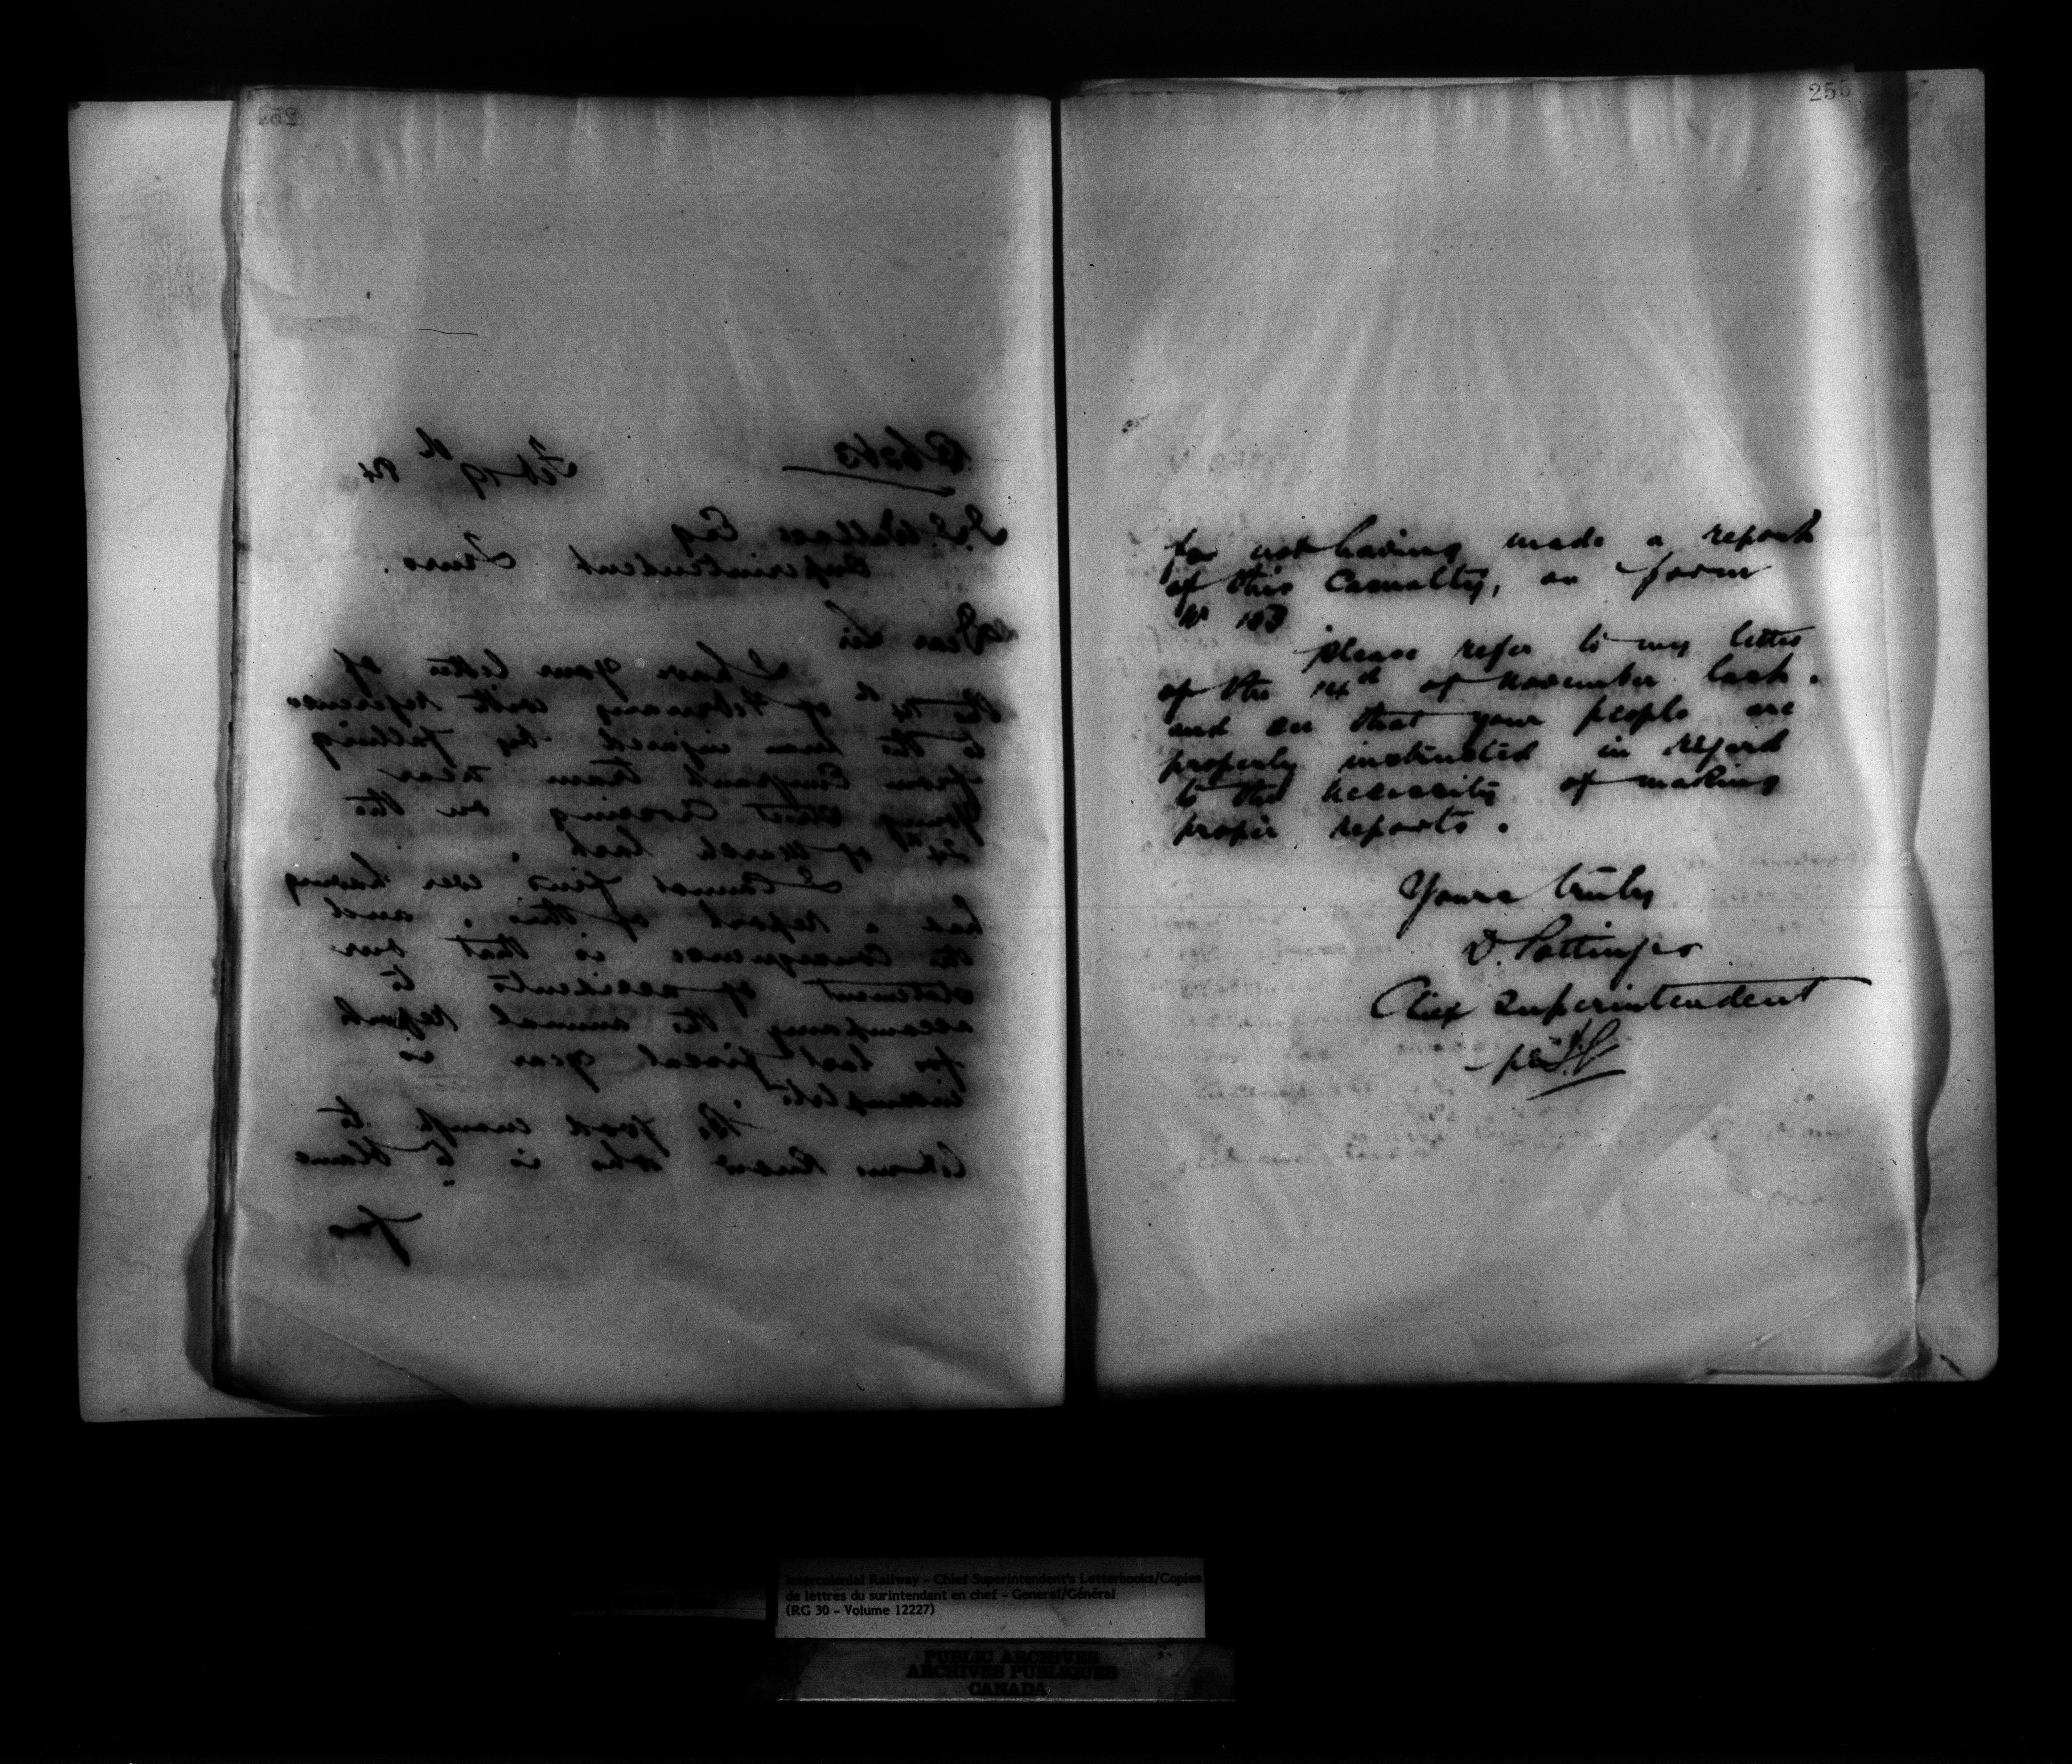 254
Feb 19th 84
J. S. Wallace Esq
Superintendent Truro.
Dear Sir
I have your letter of
the of February with reference
to the man injured by falling
from Emigrant train near
Young Street Crossing on the
24th of March last.
I cannot find ever having
had a report of this, and
the consequence is that our
statement of accidents to
accompany the annual report
for last fiscal year is
incomplete.
Be good enough to
let me know who is to blame
for
255
for not having made a report
of this Casualty, on form
No 183
Please refer to my letter
of the 14th of November last.
and see that your people are
properly instructed in regard
to the necessity of making
proper reports.
Yours truly
D. Pottinger
Chief Superintendent
per
Intercolonial Railway - Chief Superintendent's Letterbooks/Copies
de lettres du surintendant en chef - General/Général
(RG 30 - Volume 12227)
PUBLIC ARCHIVES
ARCHIVES PUBLIQUES
CANADA